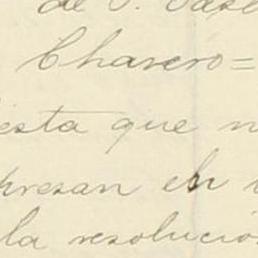 de
Chavero=
esta que
presan en
la resolución